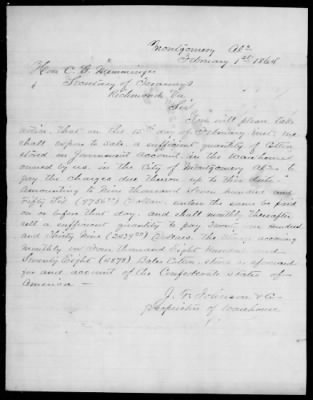 Montgomery Ala
February 1st 1864
Hon C. G. Memminger
Secretary of Treasury
Richmond Va
Sir
You will please take
notice that on the 15th day of February inst, we
shall expose to sale a sufficient quantity of Cotton
stored on Government account in the Warehouse
owned by us in the City of Montgomery Ala to
pay the charges due thereon up to this date
amounting to Nine thousand Seven hundred and
Fifty Six (9756) Dollars, unless the same be paid
on or before that day. and shall monthly thereafter
sell a sufficient quantity to pay Twenty four hundred
and Thirty Nine (2439) Dollars, the accruing
monthly on Four thousand Eight hundred and
Seventy Eight (4878) Bales Cotton, stored as aforesaid
for and account of the Confederate States of
America —
J. G. Johnson & Co
Proprietors of Warehouse